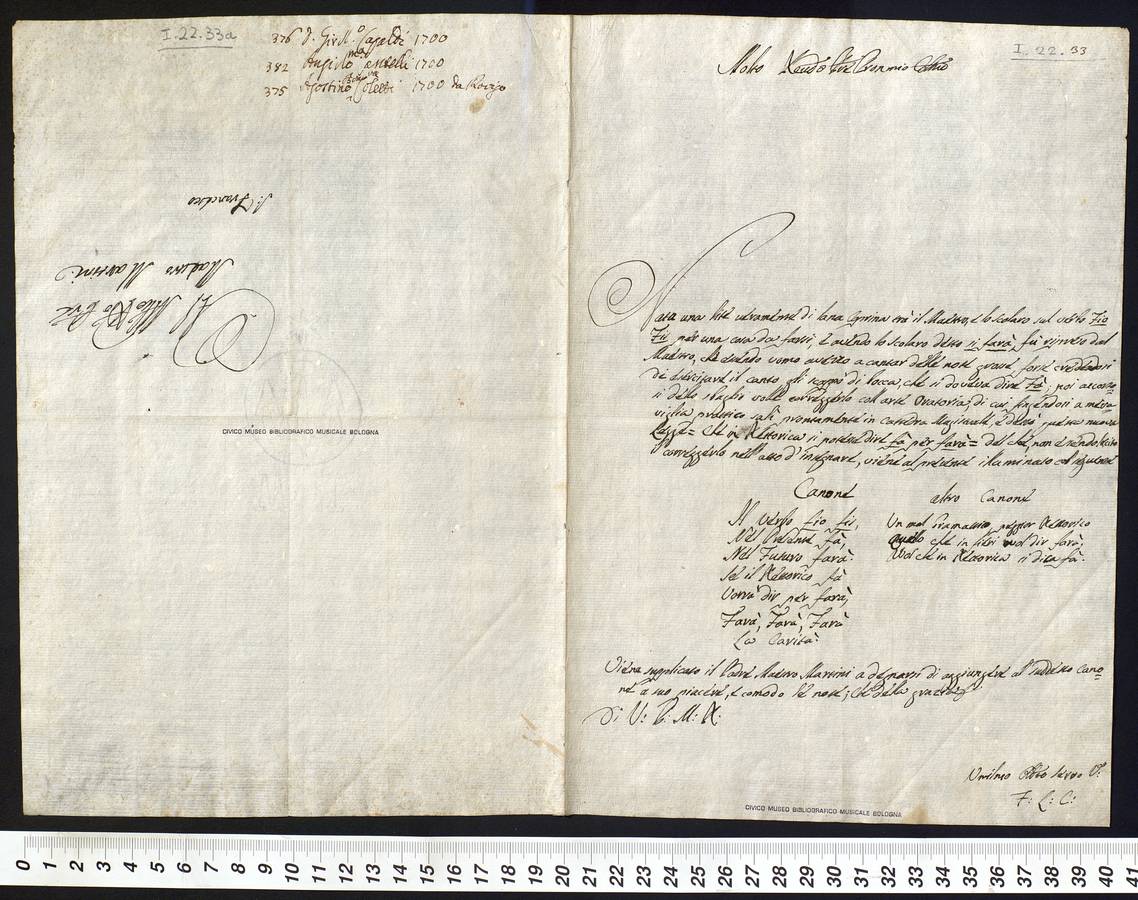 I.22.33a
376 D. Girol.º Capaldi 1700
382 Angiolo 1700
375 Agostino 1700 da
P: Francesco
Al Mto Rdo Pre
Maestro Martini
CIVICO MUSEO BIBLIOGRAFICO MUSICALE BOLOGNA
I. 22. 33
Molto Revdo Pre Pron mio Colmo
Nata una lite veramente di lana Caprina trà il Maestro, e lo scolaro sul verbo Fio
Fis per una cosa da farsi, e avendo lo scolaro detto si farà, fù ripreso dal
Maestro, che essendo uomo avezzo a cantar delle note grosse forse credendosi
di esercitare il canto gli scappò di bocca, che si doveva dire Fà; poi accorto
si dello sbaglio volle correggerlo coll'arte Oratoria, di cui facendosi a mera-
viglia prattico salì prontamente in Cattedra Magistrale, e dettò questo nuovo
che in Rettorica si potesse dire fà per farà= del che non essendo
correggerlo nell'atto d'insegnare, viene al presente illuminato col seguente
Canone
Il verbo fio fis,
Nel Presente fà,
Nel Futuro farà.
Se il Rettorico fà
Vorrà dir per farà,
Farà, Farà, Farà
La Carità.
altro Canone
Un mal Gramatico, peggior Rettorico
quello che in libri vol dir farà,
Vol che in Rettorica si dica fà.
Viene supplicato il Padre Maestro Martini a degnarsi di aggiungere al suddetto Cano-
ne a suo piacere, e comodo le note; che della grazia
Di V: P: M: R:
Umilmo servo V.
F: L: C:
CIVICO MUSEO BIBLIOGRAFICO MUSICALE BOLOGNA
0 1 2 3 4 5 6 7 8 9 10 11 12 13 14 15 16 17 18 19 20 21 22 23 24 25 26 27 28 29 30 31 32 33 34 35 36 37 38 39 40 41